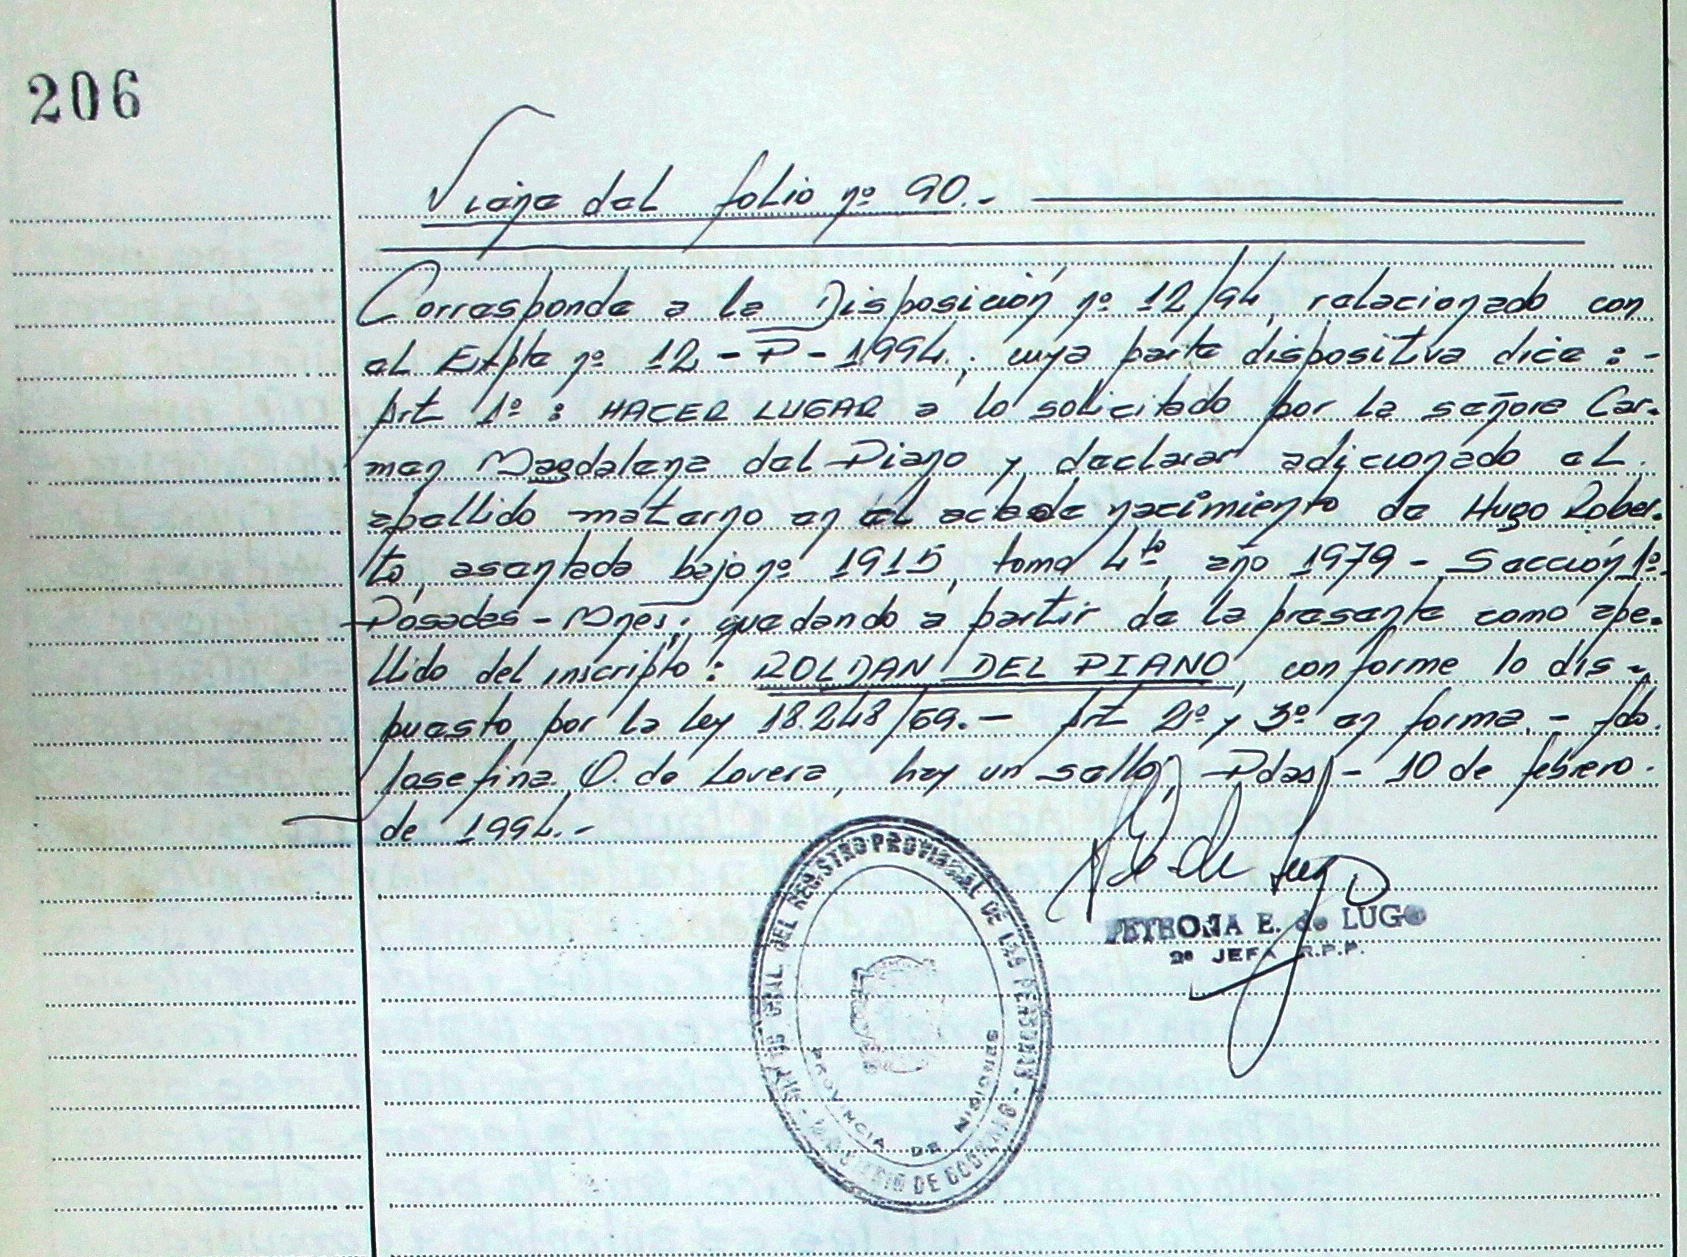 206
Viene del folio nº 90.-
Corresponde a la Disposición nº 12/94, relacionado con
el Expte nº 12-P-1994.; cuya parte dispositiva dice:-
Art 1º: HACER LUGAR a lo solicitado por la señora Car-
men Magdalena del Piano y declarar adicionado el
apellido materno en el acta de nacimiento de Hugo Rober-
to, asentada bajo nº 1915, tomo 4to, año 1979 - Sección 1º.
Posadas - Mnes; quedando a partir de la presente como ape-
llido del inscripto: ROLDAN DEL PIANO, conforme lo dis-
puesto por la Ley 18.248/69.- Art 2º y 3º en forma.- fdo.
Josefina O. de Lovera, hay un sello, Pdas, - 10 de febrero
de 1994.-
PETRONA E. de LUGO
2º JEFA R.P.P.
GRAL. DEL REGISTRO PROVINCIAL DE LAS PERSONAS - MINISTERIO DE GOBIERNO
PROVINCIA DE MISIONES